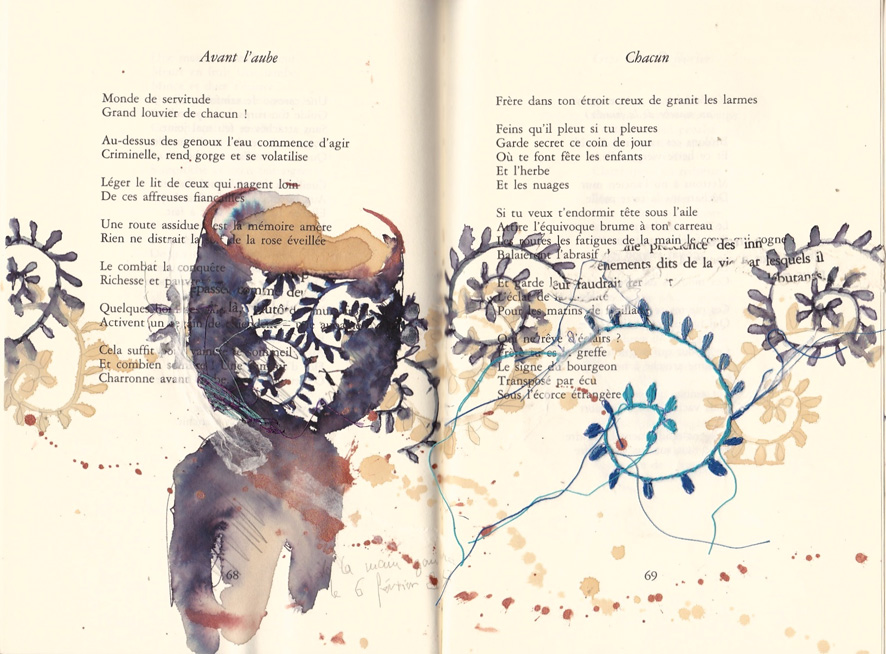 Avant l'aube
Monde de servitude
Grand louvier de chacun !
Au-dessus des genoux l'eau commence d'agir
Criminelle, rend gorge et se volatilise
Léger le lit de ceux qui nagent loin
De ces affreuses fiançailles
Une route assidue est la mémoire amère
Rien ne distrait la de la rose éveillée
Le combat la conquête
Richesse et
Quelques
Activent un
Cela suffit sommeil
Et combien
Charronne avant
la main
le 6 février
68
Chacun
Frère dans ton étroit creux de granit les larmes
Feins qu'il pleut si tu pleures
Garde secret ce coin de jour
Où te font fête les enfants
Et l'herbe
Et les nuages
Si tu veux t'endormir tête sous l'aile
Attire l'équivoque brume à ton carreau
Les routes les fatigues de la main le
Balaieront l'abrasif
des inn
dits de la vie par lesquels il
Et garde
leur faudrait
L'éclat de
Pour les matins de
Qui ne rêve
greffe
Le signe du bourgeon
Transposé par écu
Sous l'écorce étrangère
69